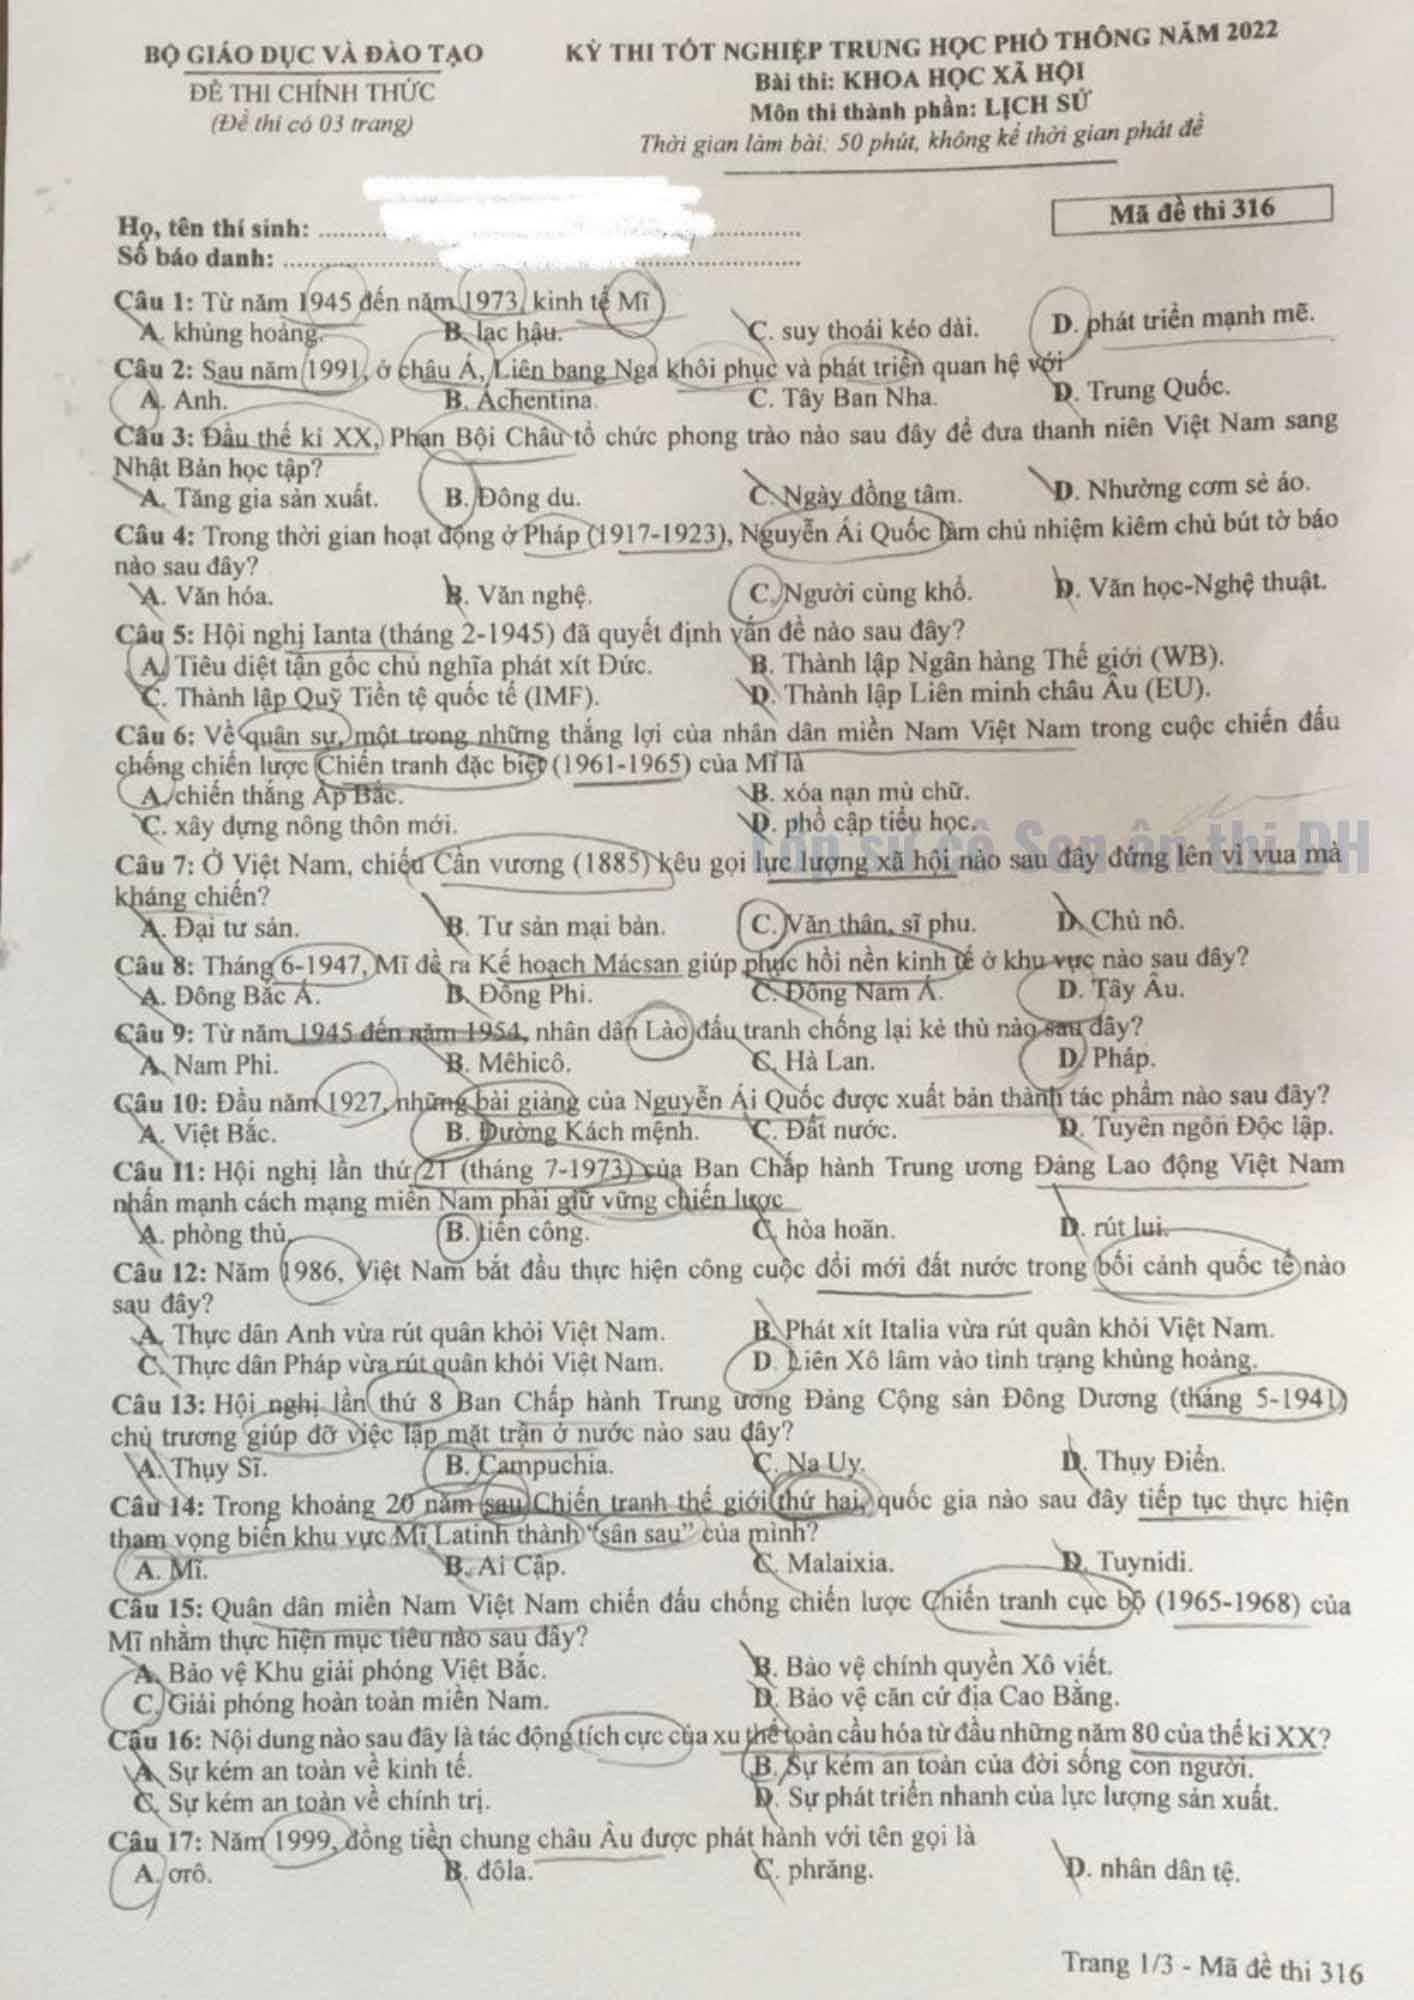 BỘ GIÁO DỤC VÀ ĐÀO TẠO
ĐỀ THI CHÍNH THỨC
(Đề thi có 03 trang)
KỲ THI TỐT NGHIỆP TRUNG HỌC PHỔ THÔNG NĂM 2022
Bài thi: KHOA HỌC XÃ HỘI
Môn thi thành phần: LỊCH SỬ
Thời gian làm bài: 50 phút, không kể thời gian phát đề
Mã đề thi 316
Họ, tên thí sinh:
Số báo danh:
Câu 1: Từ năm 1945 đến năm 1973, kinh tế Mĩ
A. khủng hoảng. B. lạc hậu. C. suy thoái kéo dài. D. phát triển mạnh mẽ.
Câu 2: Sau năm 1991, ở châu Á, Liên bang Nga khôi phục và phát triển quan hệ với
A. Anh. B. Áchentina. C. Tây Ban Nha. D. Trung Quốc.
Câu 3: Đầu thế kỉ XX, Phan Bội Châu tổ chức phong trào nào sau đây để đưa thanh niên Việt Nam sang
Nhật Bản học tập?
A. Tăng gia sản xuất. B. Đông du. C. Ngày đồng tâm. D. Nhường cơm sẻ áo.
Câu 4: Trong thời gian hoạt động ở Pháp (1917-1923), Nguyễn Ái Quốc làm chủ nhiệm kiêm chủ bút tờ báo
nào sau đây?
A. Văn hóa. B. Văn nghệ. C. Người cùng khổ. D. Văn học-Nghệ thuật.
Câu 5: Hội nghị Ianta (tháng 2-1945) đã quyết định vấn đề nào sau đây?
A. Tiêu diệt tận gốc chủ nghĩa phát xít Đức. B. Thành lập Ngân hàng Thế giới (WB).
C. Thành lập Quỹ Tiền tệ quốc tế (IMF). D. Thành lập Liên minh châu Âu (EU).
Câu 6: Về quân sự, một trong những thắng lợi của nhân dân miền Nam Việt Nam trong cuộc chiến đấu
chống chiến lược Chiến tranh đặc biệt (1961-1965) của Mĩ là
A. chiến thắng Ấp Bắc. B. xóa nạn mù chữ.
C. xây dựng nông thôn mới. D. phổ cập tiểu học.
Lớp sử cô Sen ôn thi ĐH
Câu 7: Ở Việt Nam, chiếu Cần vương (1885) kêu gọi lực lượng xã hội nào sau đây đứng lên vì vua mà
kháng chiến?
A. Đại tư sản. B. Tư sản mại bản. C. Văn thân, sĩ phu. D. Chủ nô.
Câu 8: Tháng 6-1947, Mĩ đề ra Kế hoạch Mácsan giúp phục hồi nền kinh tế ở khu vực nào sau đây?
A. Đông Bắc Á. B. Đông Phi. C. Đông Nam Á. D. Tây Âu.
Câu 9: Từ năm 1945 đến năm 1954, nhân dân Lào đấu tranh chống lại kẻ thù nào sau đây?
A. Nam Phi. B. Mêhicô. C. Hà Lan. D. Pháp.
Câu 10: Đầu năm 1927, những bài giảng của Nguyễn Ái Quốc được xuất bản thành tác phẩm nào sau đây?
A. Việt Bắc. B. Đường Kách mệnh. C. Đất nước. D. Tuyên ngôn Độc lập.
Câu 11: Hội nghị lần thứ 21 (tháng 7-1973) của Ban Chấp hành Trung ương Đảng Lao động Việt Nam
nhấn mạnh cách mạng miền Nam phải giữ vững chiến lược
A. phòng thủ. B. tiến công. C. hòa hoãn. D. rút lui.
Câu 12: Năm 1986, Việt Nam bắt đầu thực hiện công cuộc đổi mới đất nước trong bối cảnh quốc tế nào
sau đây?
A. Thực dân Anh vừa rút quân khỏi Việt Nam. B. Phát xít Italia vừa rút quân khỏi Việt Nam.
C. Thực dân Pháp vừa rút quân khỏi Việt Nam. D. Liên Xô lâm vào tình trạng khủng hoảng.
Câu 13: Hội nghị lần thứ 8 Ban Chấp hành Trung ương Đảng Cộng sản Đông Dương (tháng 5-1941)
chủ trương giúp đỡ việc lập mặt trận ở nước nào sau đây?
A. Thụy Sĩ. B. Campuchia. C. Na Uy. D. Thụy Điển.
Câu 14: Trong khoảng 20 năm sau Chiến tranh thế giới thứ hai, quốc gia nào sau đây tiếp tục thực hiện
tham vọng biến khu vực Mĩ Latinh thành “sân sau” của mình?
A. Mĩ. B. Ai Cập. C. Malaixia. D. Tuynidi.
Câu 15: Quân dân miền Nam Việt Nam chiến đấu chống chiến lược Chiến tranh cục bộ (1965-1968) của
Mĩ nhằm thực hiện mục tiêu nào sau đây?
A. Bảo vệ Khu giải phóng Việt Bắc. B. Bảo vệ chính quyền Xô viết.
C. Giải phóng hoàn toàn miền Nam. D. Bảo vệ căn cứ địa Cao Bằng.
Câu 16: Nội dung nào sau đây là tác động tích cực của xu thế toàn cầu hóa từ đầu những năm 80 của thế kỉ XX?
A. Sự kém an toàn về kinh tế. B. Sự kém an toàn của đời sống con người.
C. Sự kém an toàn về chính trị. D. Sự phát triển nhanh của lực lượng sản xuất.
Câu 17: Năm 1999, đồng tiền chung châu Âu được phát hành với tên gọi là
A. ơrô. B. đôla. C. phrăng. D. nhân dân tệ.
Trang 1/3 - Mã đề thi 316